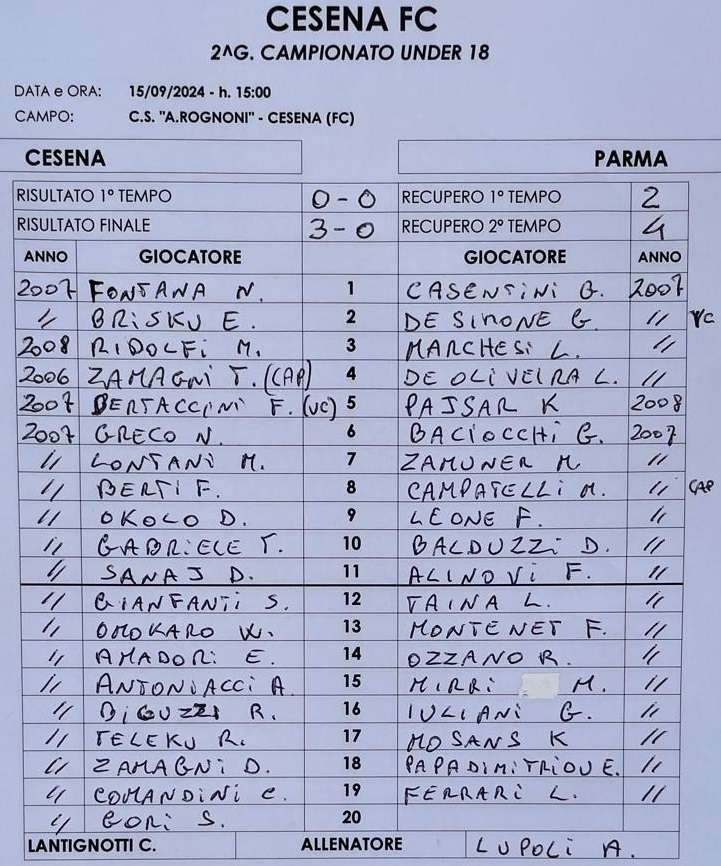 CESENA FC
2^G. CAMPIONATO UNDER 18
DATA e ORA: 15/09/2024 - h. 15:00
CAMPO: C.S. "A.ROGNONI" - CESENA (FC)
CESENA PARMA
RISULTATO 1° TEMPO 0-0 RECUPERO 1° TEMPO 2
RISULTATO FINALE 3-0 RECUPERO 2° TEMPO 4
ANNO GIOCATORE GIOCATORE ANNO
2007 FONTANA N. 1 CASENTINI G. 2007
" BRISKU E. 2 DE SIMONE G. " VC
2008 RIDOLFI M. 3 MARCHESI L. "
2006 ZAMAGNI T. (CAP) 4 DE OLIVEIRA L. "
2007 BERTACCINI F. (VC) 5 PAJSAR K 2008
2007 GRECO N. 6 BACIOCCHI G. 2007
" LONTANI M. 7 ZAMUNER M. "
" BERTI F. 8 CAMPATELLI M. " CAP
" OKOLO D. 9 LEONE F. "
" GABRIELE T. 10 BALDUZZI D. "
" SANAJ D. 11 ALINOVI F. "
" GIANFANTI S. 12 TAINA L. "
" OMOKARO W. 13 MONTENET F. "
" AMADORI E. 14 OZZANO R. "
" ANTONIACCI A. 15 MIRRI M. "
" BIGUZZI R. 16 IULIANI G. "
" TELEKU R. 17 MOSANS K "
" ZAMAGNI D. 18 PAPADIMITRIOU E. "
" COMANDINI C. 19 FERRARI L. "
" GORI S. 20
LANTIGNOTTI C. ALLENATORE LUPOLI A.